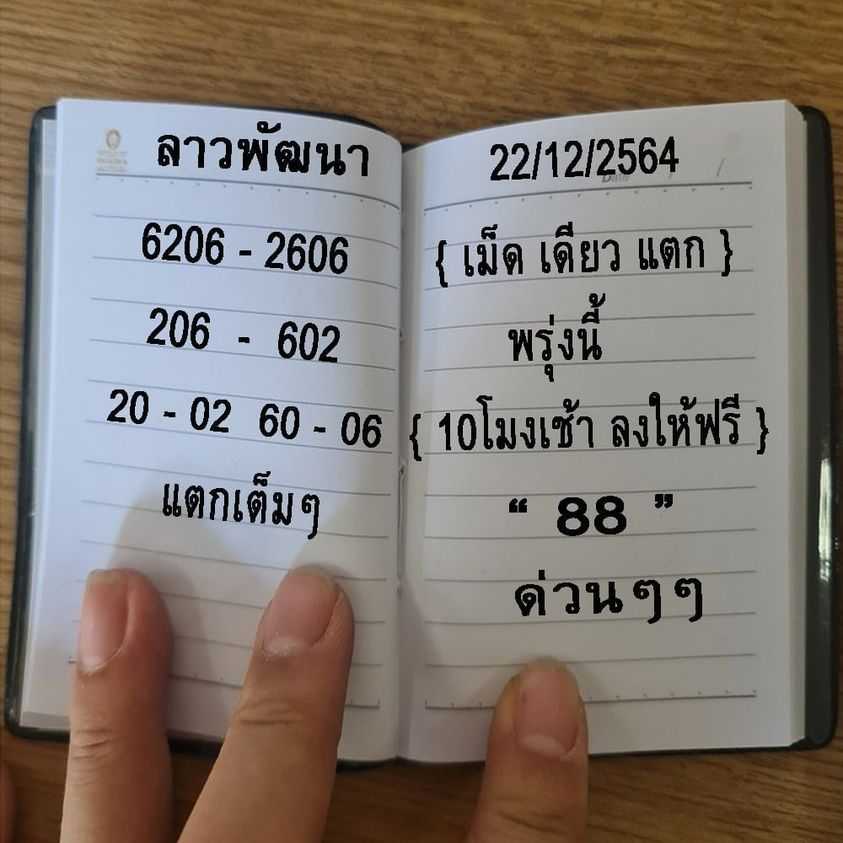 ลาวพัฒนา
6206 - 2606
206 - 602
20 - 02 60 - 06
แตกเต็มๆ
22/12/2564
{ เม็ด เดียว แตก }
พรุ่งนี้
{ 10โมงเช้า ลงให้ฟรี }
“ 88 ”
ด่วนๆๆ